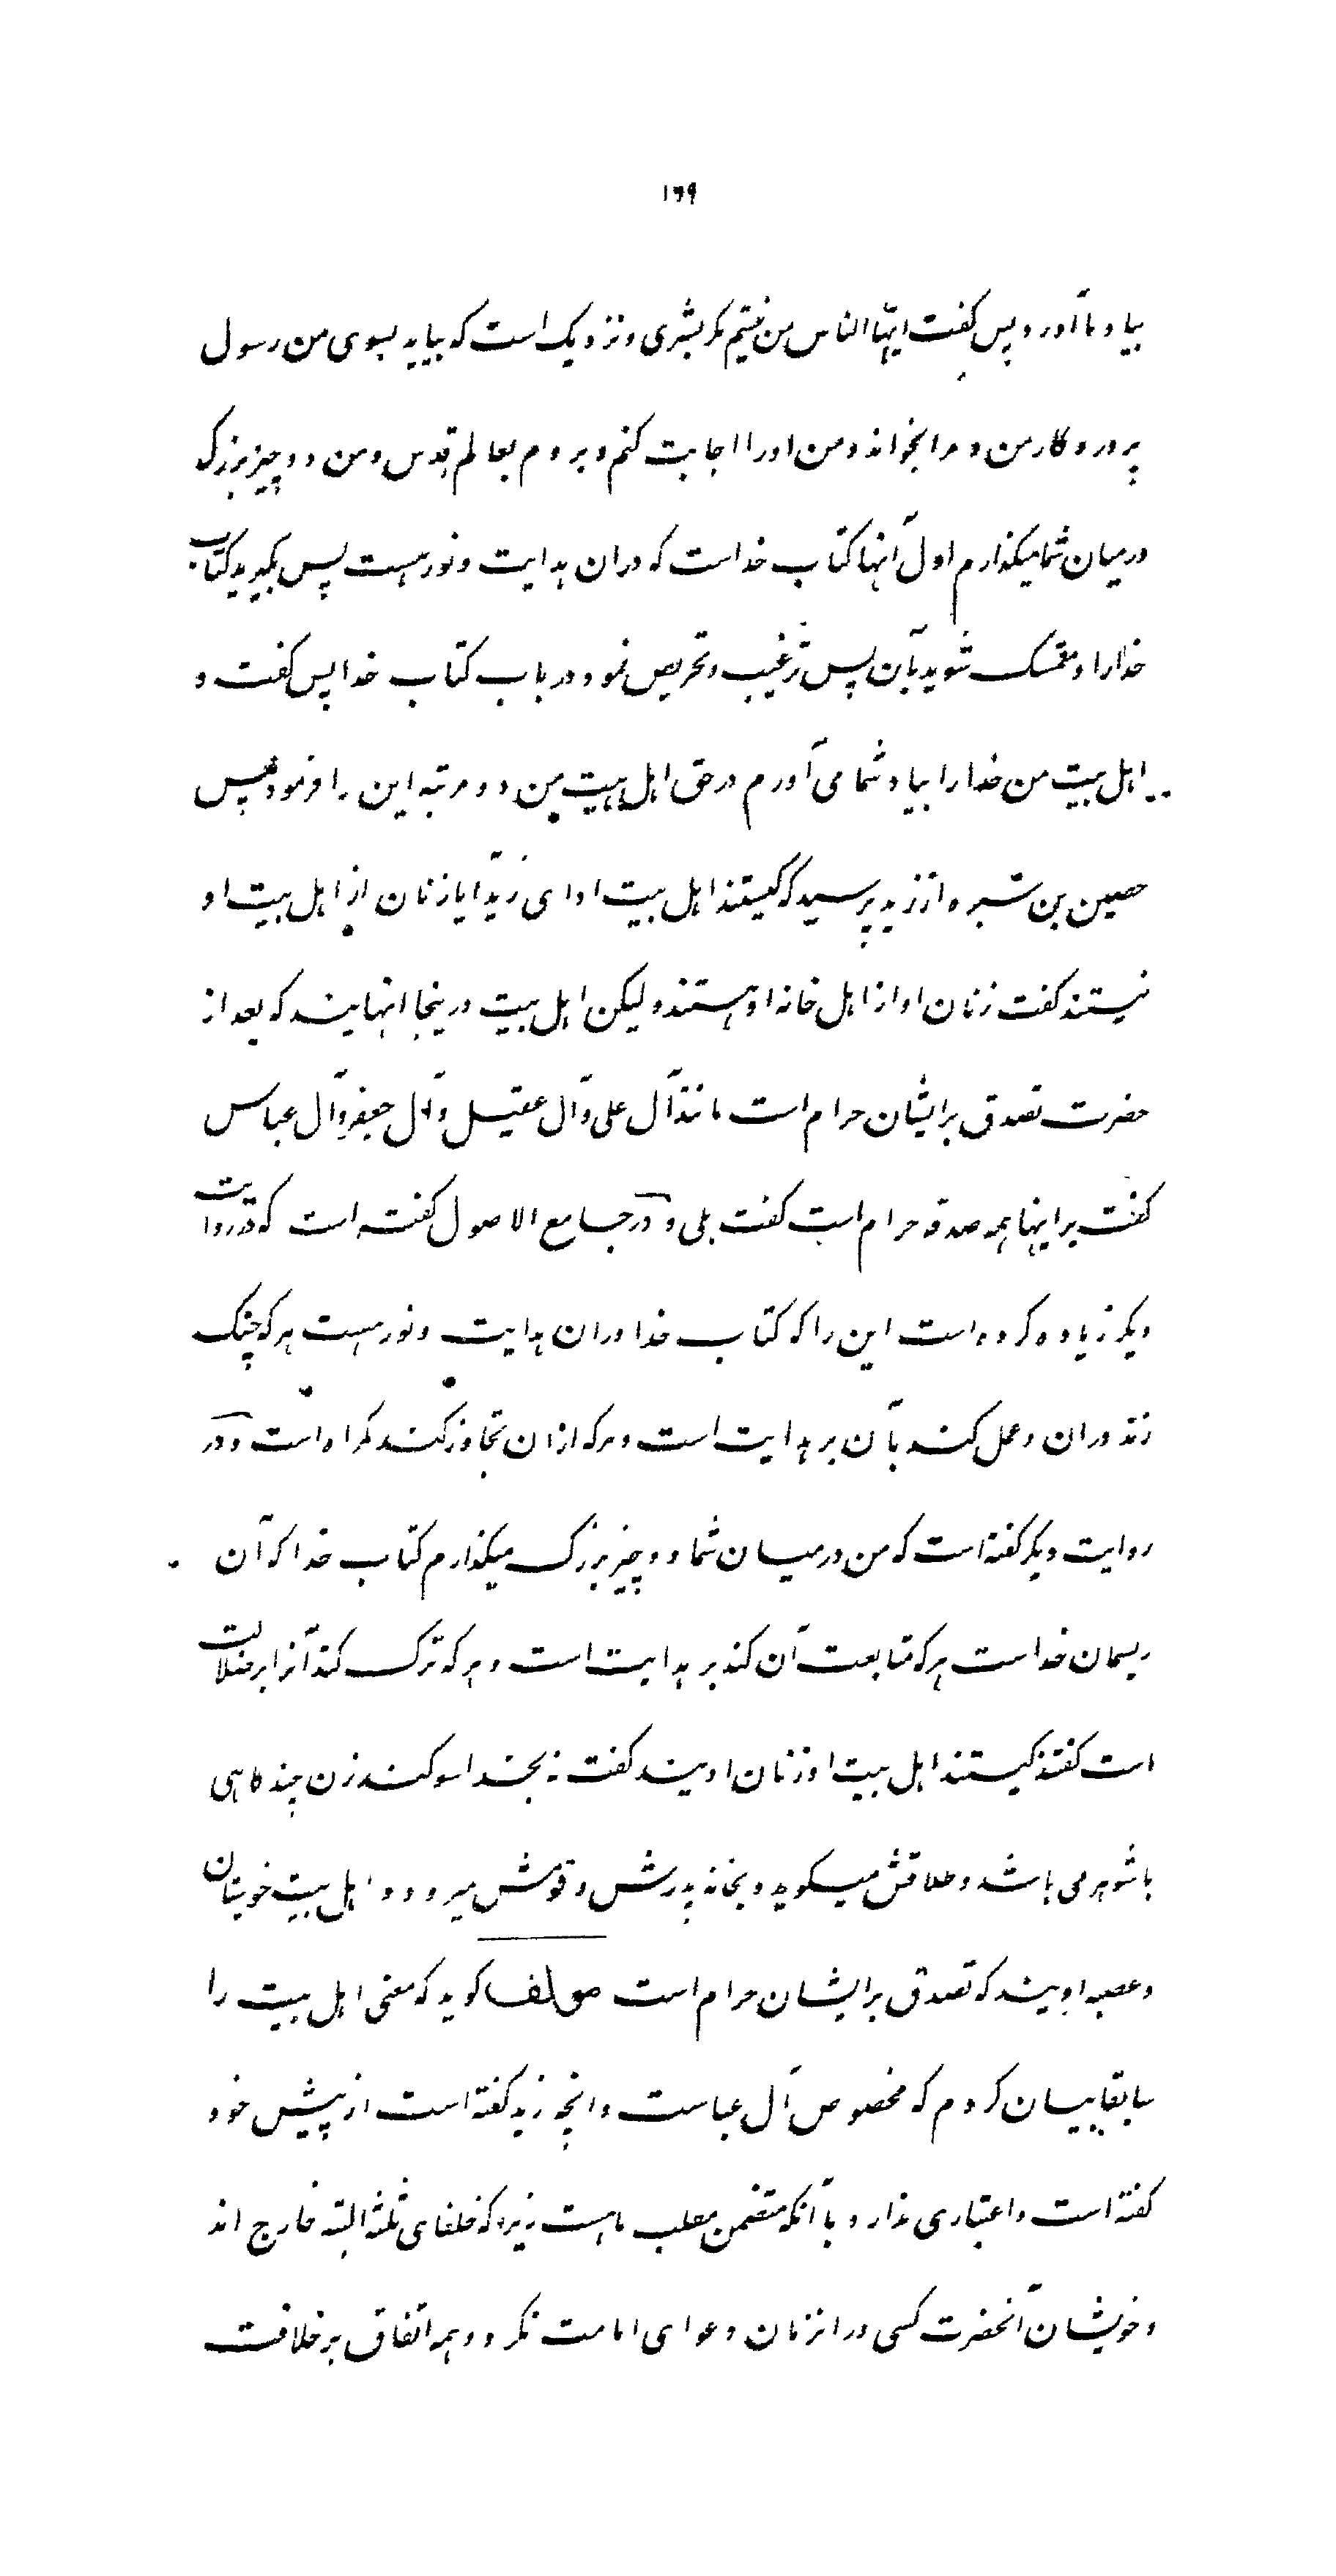 ۱۶۹
بیاد ما آورد و پس کفت ایها الناس من نیستم مکر بشری و نزدیک است که بیاید بسوی من رسول
پروردکار من و مرا بخواند و من او را اجابت کنم و بروم بعالم قدس و من دو چیز بزرک
در میان شما میکذارم اول آنها کتاب خداست که دران هدایت و نور هست پس بکیرید کتاب
خدا را و متمسک شوید بآن پس ترغیب و تحریص نمود در باب کتاب خدا پس کفت و
اهل بیت من خدا را بیاد شما می آورم در حق اهل بیت من دو مرتبه این را فرمود پس
حصین بن سبره از زید پرسید که کیستند اهل بیت او ای زید آیا زنان از اهل بیت او
نیستند کفت زنان او از اهل خانه او هستند ولیکن اهل بیت در ینجا انهایند که بعد از
حضرت تصدق بر ایشان حرام است مانند آل علی و آل عقیل و آل جعفر و آل عباس
کفت بر اینها همه صدقه حرام است کفت بلی و در جامع الاصول کفته است که در روایت
دیکر زیاده کرده است این را که کتاب خدا دران هدایت و نور هست هر که چنک
زند دران و عمل کند بآن بر هدایت است و هر که ازان تجاوز کند کمراه است و در
روایت دیکر کفته است که من در میان شما دو چیز بزرک میکذارم کتاب خدا که آن
ریسمان خداست هر که متابعت آن کند بر هدایت است و هر که ترک کند آنرا بر ضلالت
است کفتند کیستند اهل بیت او زنان اویند کفت نه بخدا سوکند زن چند کاهی
با شوهر می باشد و طلاقش میکوید و بخانه پدرش و قومش میرود و اهل بیت خویشان
و عصبه اویند که تصدق بر ایشان حرام است مولف کوید که معنی اهل بیت را
سابقا بیان کردم که مخصوص آل عباست و انچه زید کفته است از پیش خود
کفته است و اعتباری ندارد با آنکه متضمن مطلب ما هست زیرا که خلفای ثلثه البته خارج اند
و خویشان آنحضرت کسی در انزمان دعوای امامت نکرد و همه اتفاق بر خلافت